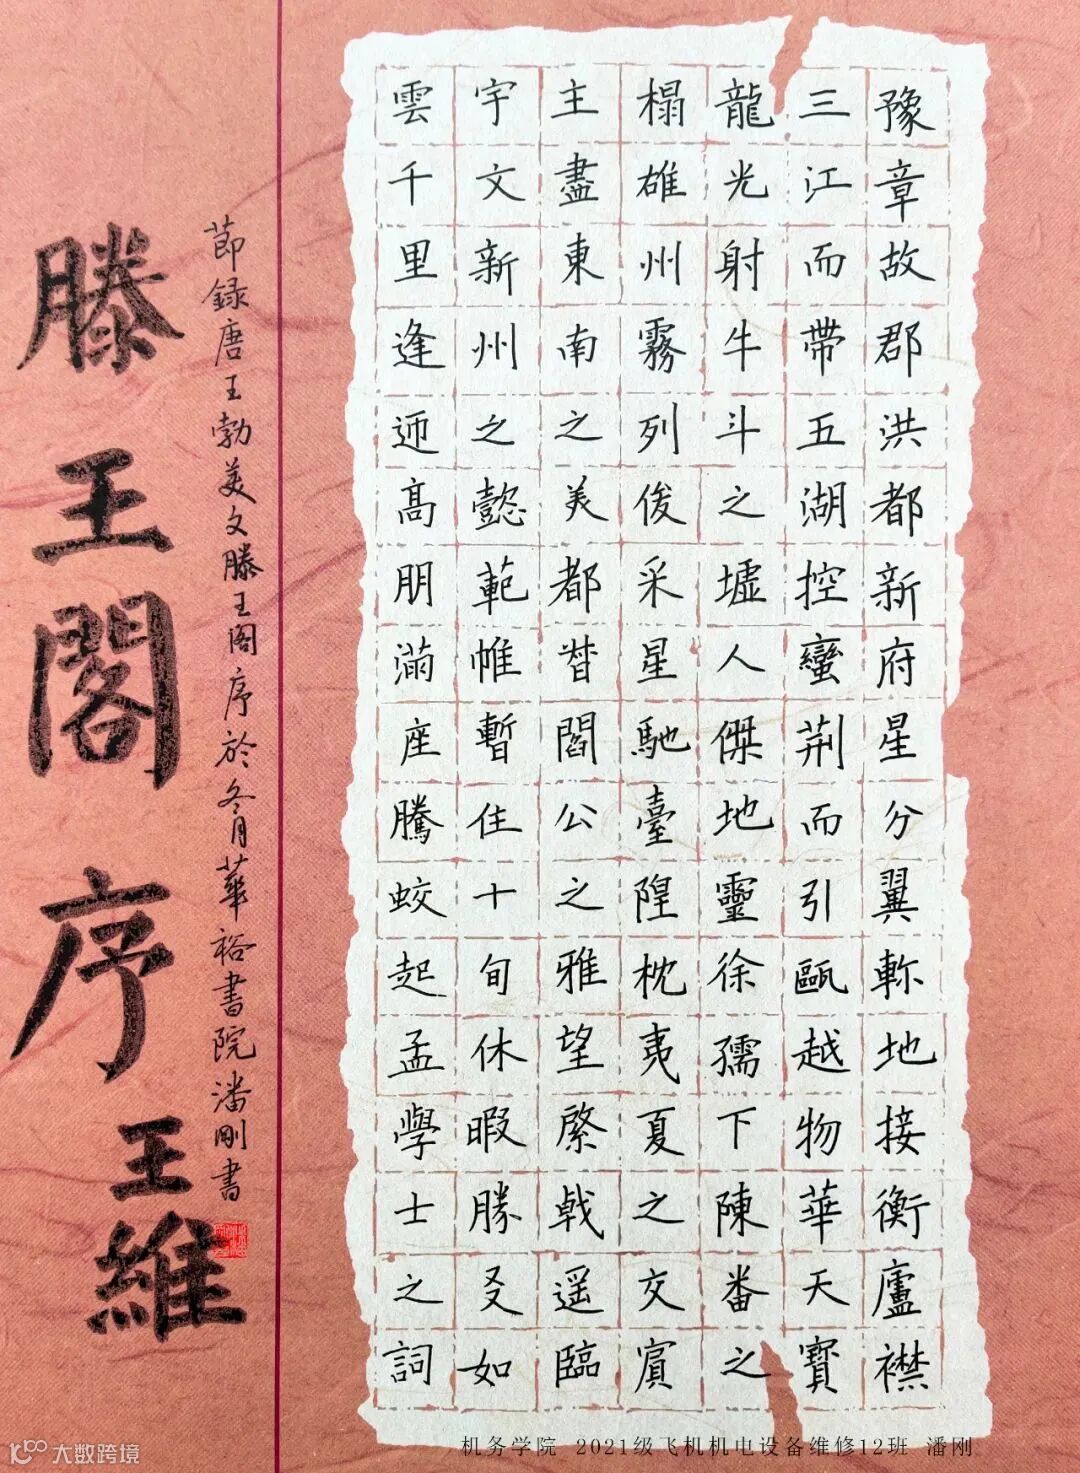 豫章故郡洪都新府星分翼軫地接衡廬襟
三江而帶五湖控蠻荆而引甌越物華天寶
龍光射牛斗之墟人傑地靈徐孺下陳番之
榻雄州霧列俊采星馳臺隍枕夷夏之交賓
主盡東南之美都督閻公之雅望棨戟遥臨
宇文新州之懿範帷暫住十旬休暇勝友如
雲千里逢迎高朋滿座騰蛟起孟學士之詞
節録唐王勃美文滕王阁序於冬月華裕書院潘刚書
滕王閣序王維
机务学院 2021级飞机机电设备维修12班 潘刚
大数跨境